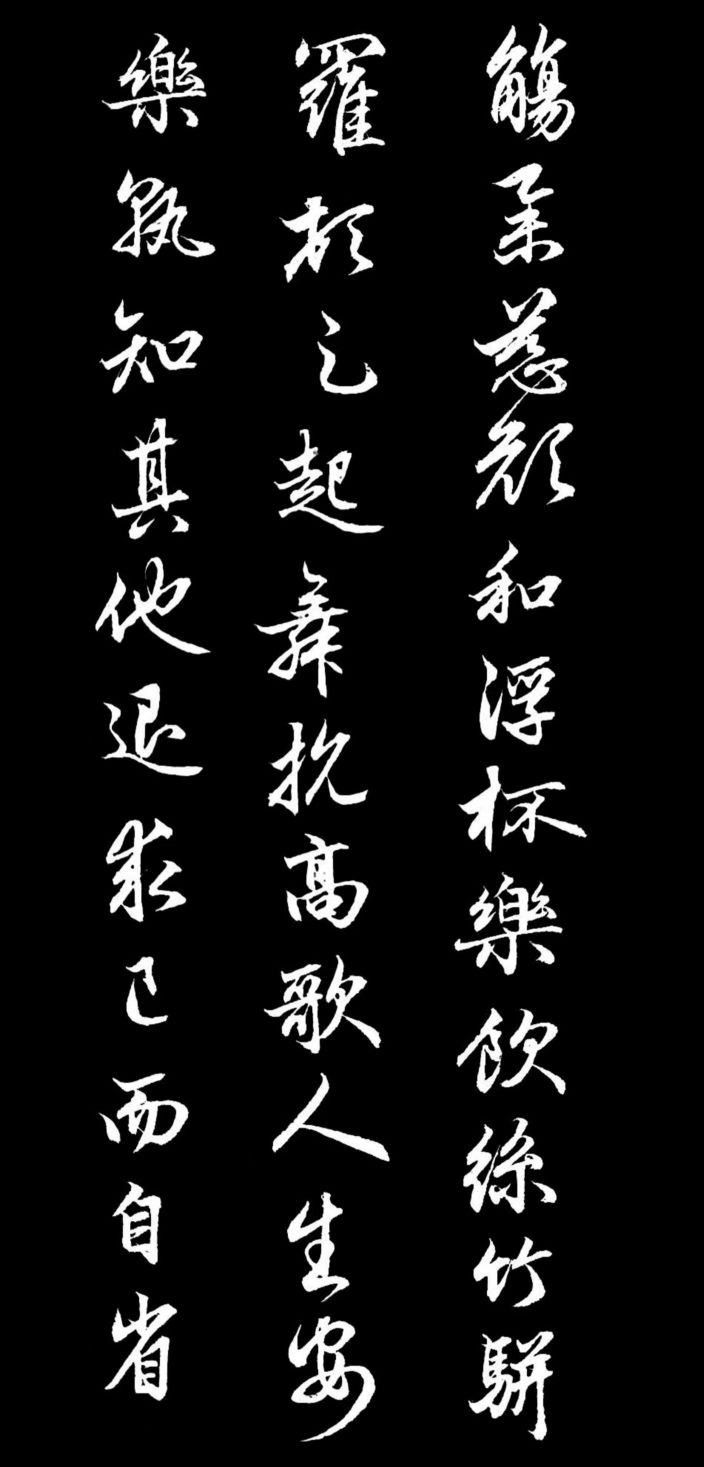 觴舉慈顔和浮杯樂飲絲竹駢
羅頓足起舞抗高歌人生安
樂孰知其他退求己而自省